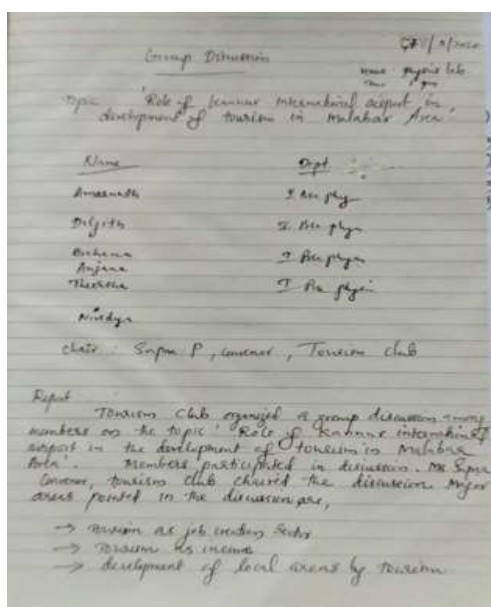 Group Discussion
/3/2020
venue physics lab
Topic 'Role of Kannur International airport in
development of tourism in Malabar Area'.
Name Dept.
Amarnath I Bsc phy
Diljith I. Bsc phy
I Bsc phy
Anjana
Theertha I Bsc physi
Nivedya
chair: Sapna P, convenor, Tourism club
Report
Tourism Club organized a group discussion among
members on the topic 'Role of Kannur international
airport in the development of tourism in Malabar
Area'. Members participated in discussion. Ms Sapna
Convenor, tourism club chaired the discussion. Major
areas pointed in the discussion are,
→ Tourism as job creation Sector
→ Tourism as income
→ development of local areas by tourism